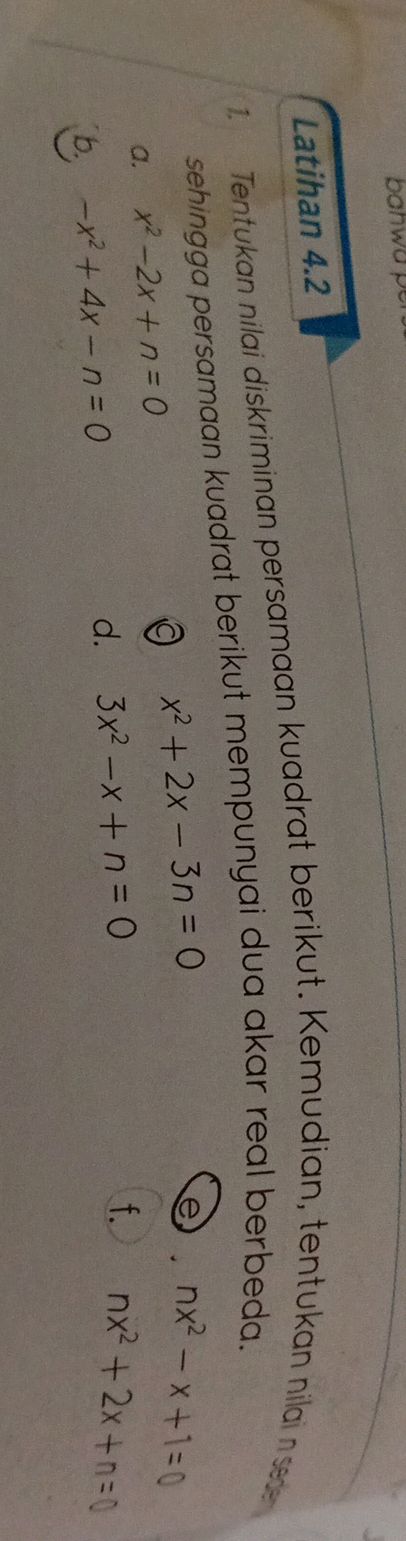 Latihan 4.2
1. Tentukan nilai diskriminan persamaan kuadrat berikut. Kemudian, tentukan nilai n
sehingga persamaan kuadrat berikut mempunyai dua akar real berbeda.
a. x² – 2x + n = 0
c x² + 2x – 3n = 0
e. nx² – x + 1 = 0
b. –x² + 4x – n = 0
d. 3x² – x + n = 0
f. nx² + 2x + n = 0